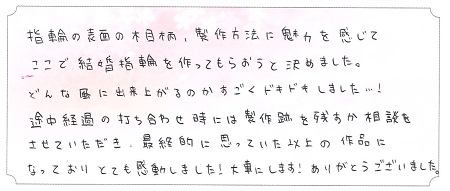 指輪の表面の木目柄，製作方法に魅力を感じて
ここで結婚指輪を作ってもらおうと決めました。
どんな風に出来上がるのかすごくドキドキしました…！
途中経過の打ち合わせ時には製作跡を残すか相談を
させていただき，最終的に思っていた以上の作品に
なっており とても感動しました！大事にします！ありがとうございました。